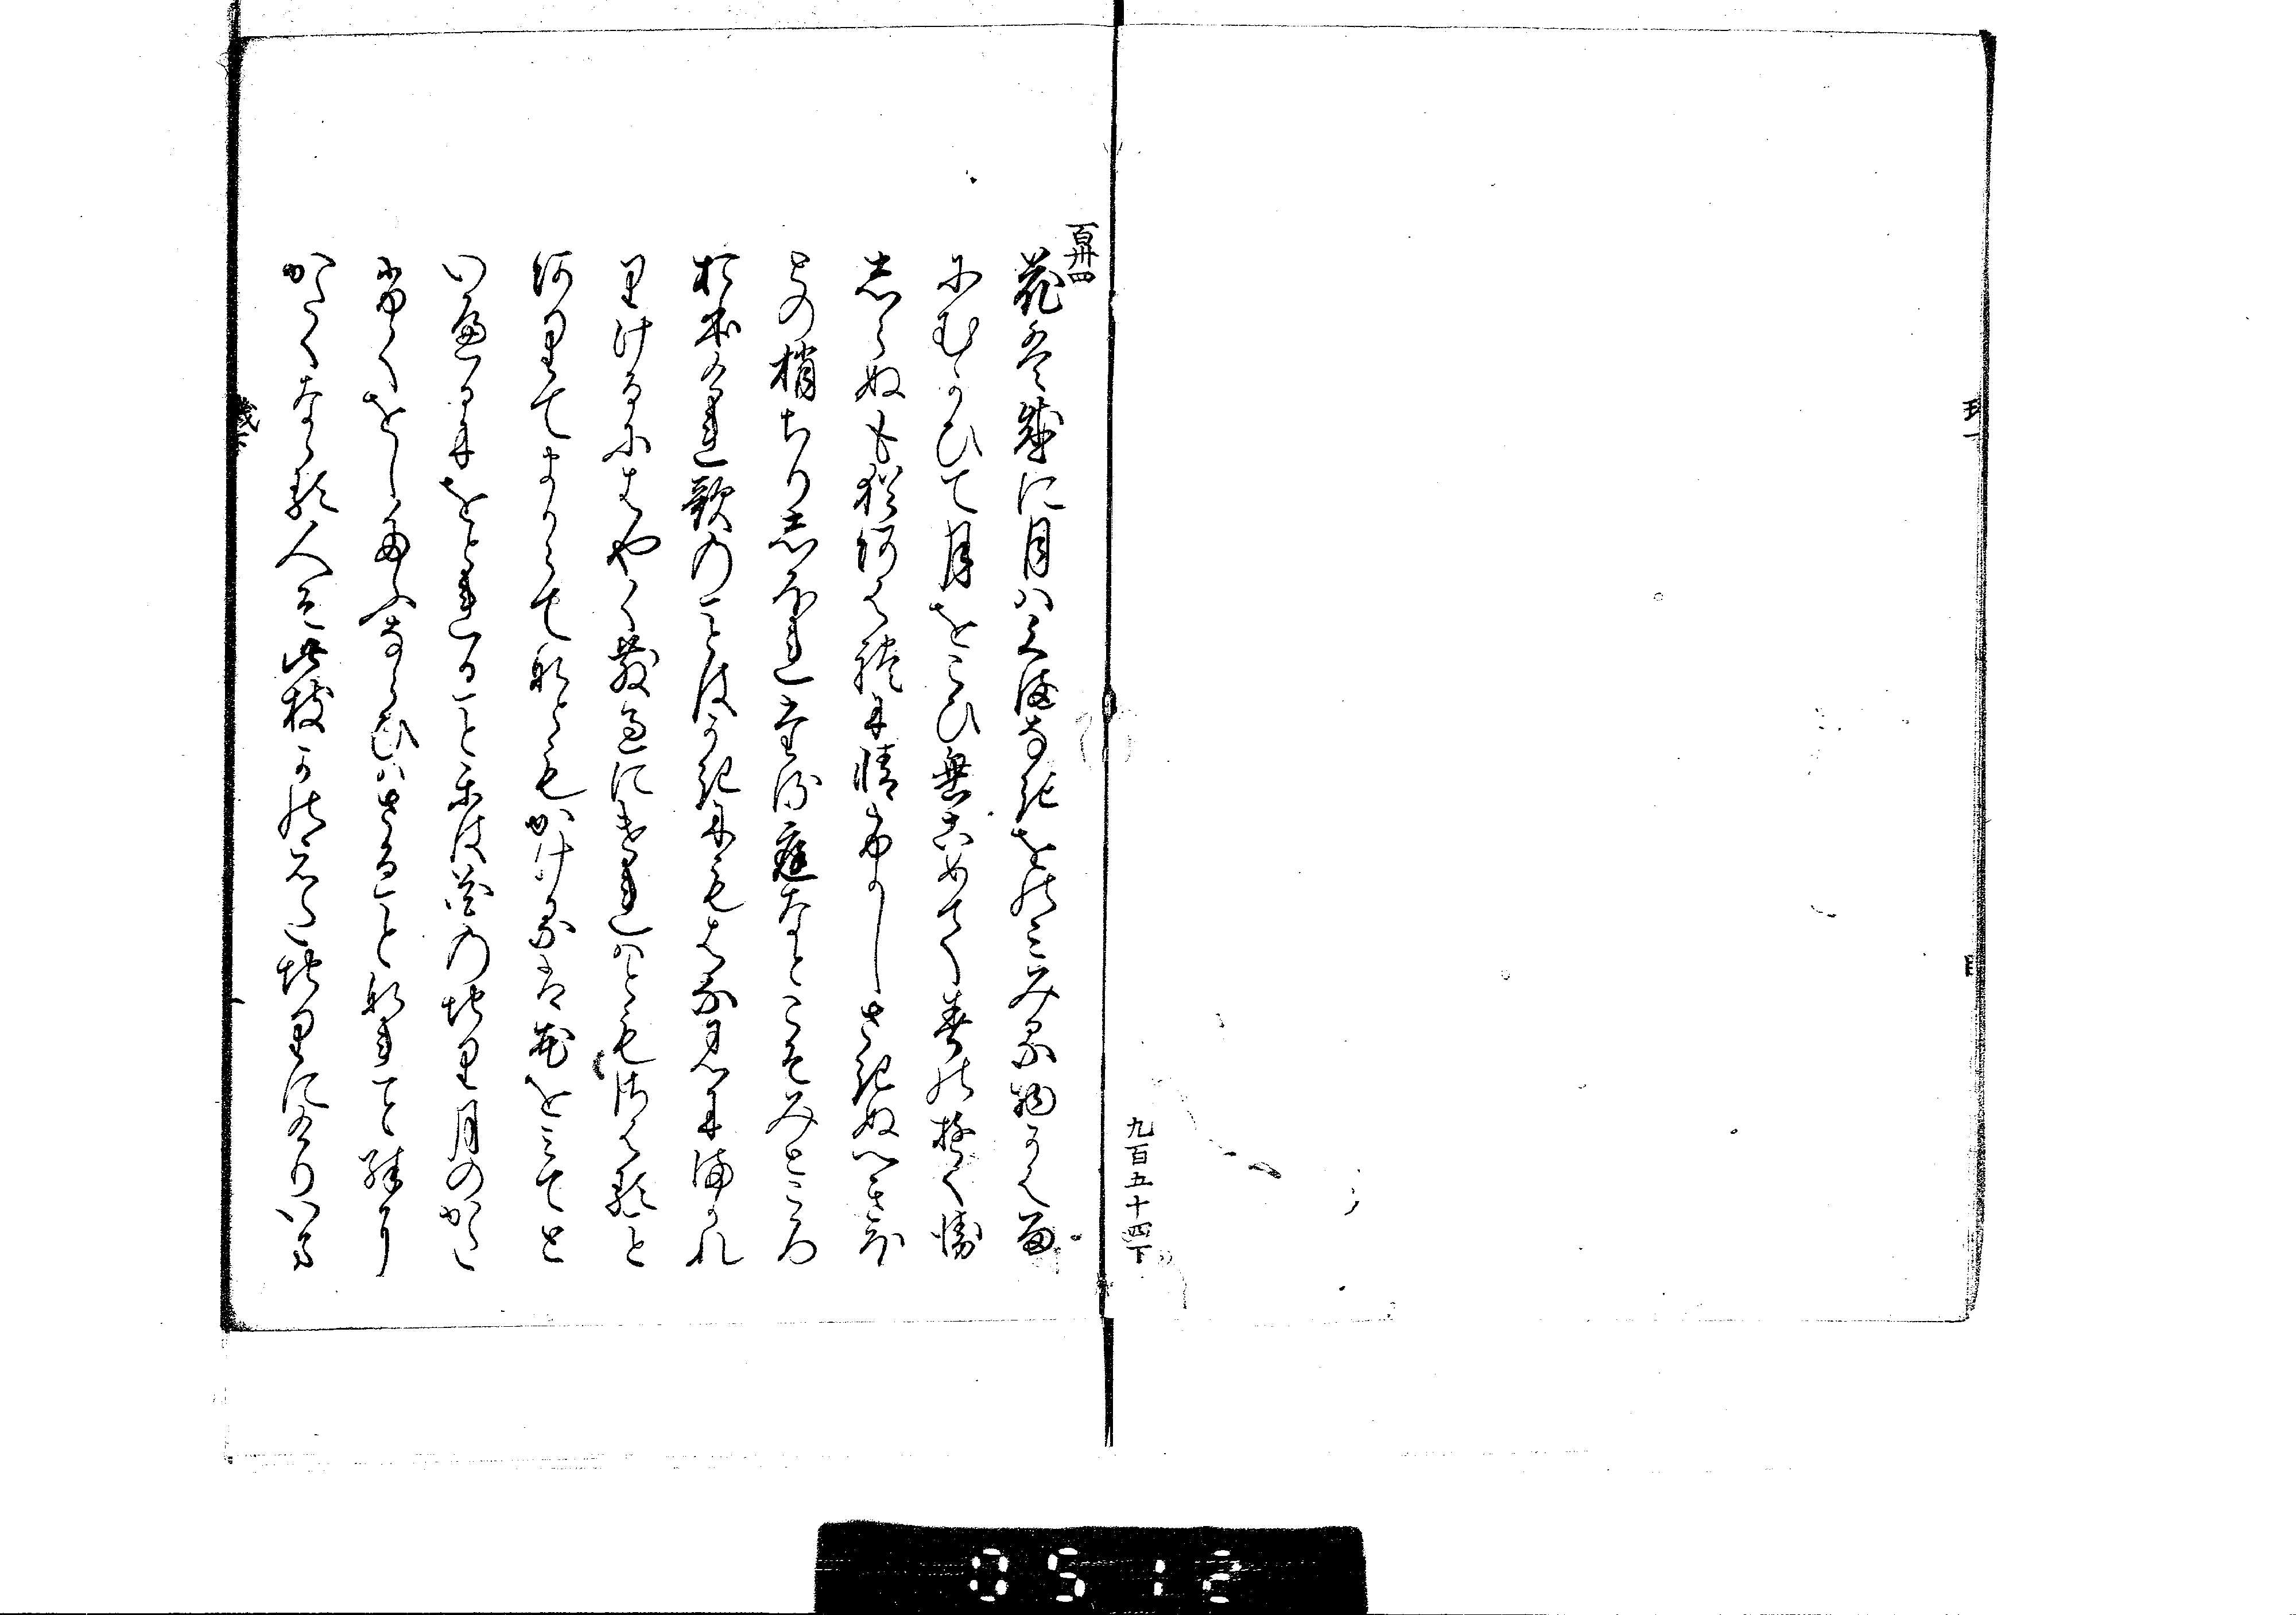 九百五十四下
百卅四
花は盛に月ハくまなきをのみみる物かは雨
にむかひて月をこひ垂こめて春の行衛
志らぬも猶あはれに情ふかしさきぬへきほ
との梢ちり志ほれたる庭なとこそみところ
おほけれ歌のことはかきにもはな見にまかれ
りけるにはやく散過にけれはともさはること
ありてまからてなともかけるは花をみてと
いへるにをとれることかは花のちり月のかた
ふくをしたふならひハさることなれとことに
かたくなゝる人そ此枝かのえたちりにけりいま